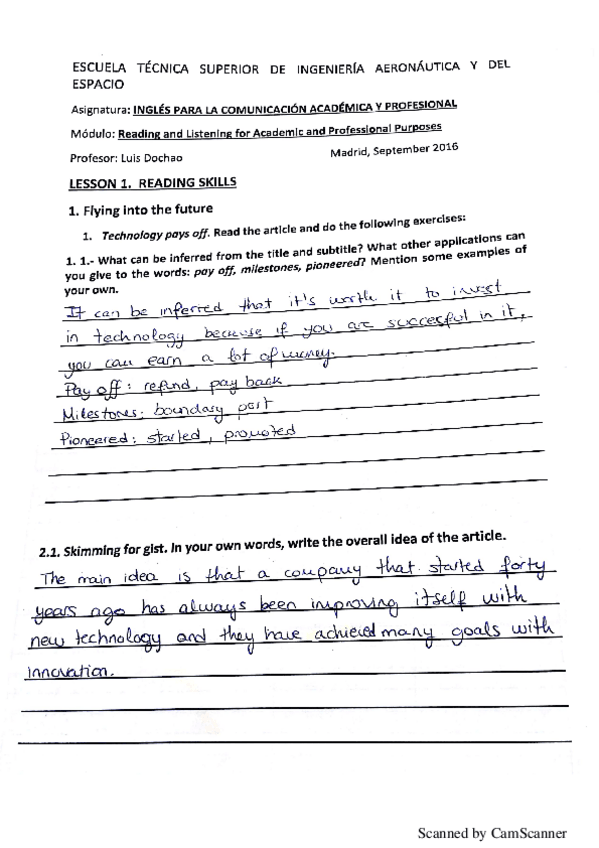 ESCUELA TÉCNICA SUPERIOR DE INGENIERÍA AERONÁUTICA Y DEL
ESPACIO
Asignatura: INGLÉS PARA LA COMUNICACIÓN ACADÉMICA Y PROFESIONAL
Módulo: Reading and Listening for Academic and Professional Purposes
Profesor: Luis Dochao Madrid, September 2016
LESSON 1. READING SKILLS
1. Flying into the future
1. Technology pays off. Read the article and do the following exercises:
1. 1.- What can be inferred from the title and subtitle? What other applications can
you give to the words: pay off, milestones, pioneered? Mention some examples of
your own.
It can be inferred that it's worth it to invest
in technology because if you are succesful in it,
you can earn a lot of money.
Pay off: refund, pay back
Milestones: boundary post
Pioneered: started, promoted
2.1. Skimming for gist. In your own words, write the overall idea of the article.
The main idea is that a company that started forty
years ago has always been improving itself with
new technology and they have achieved many goals with
innovation.
Scanned by CamScanner